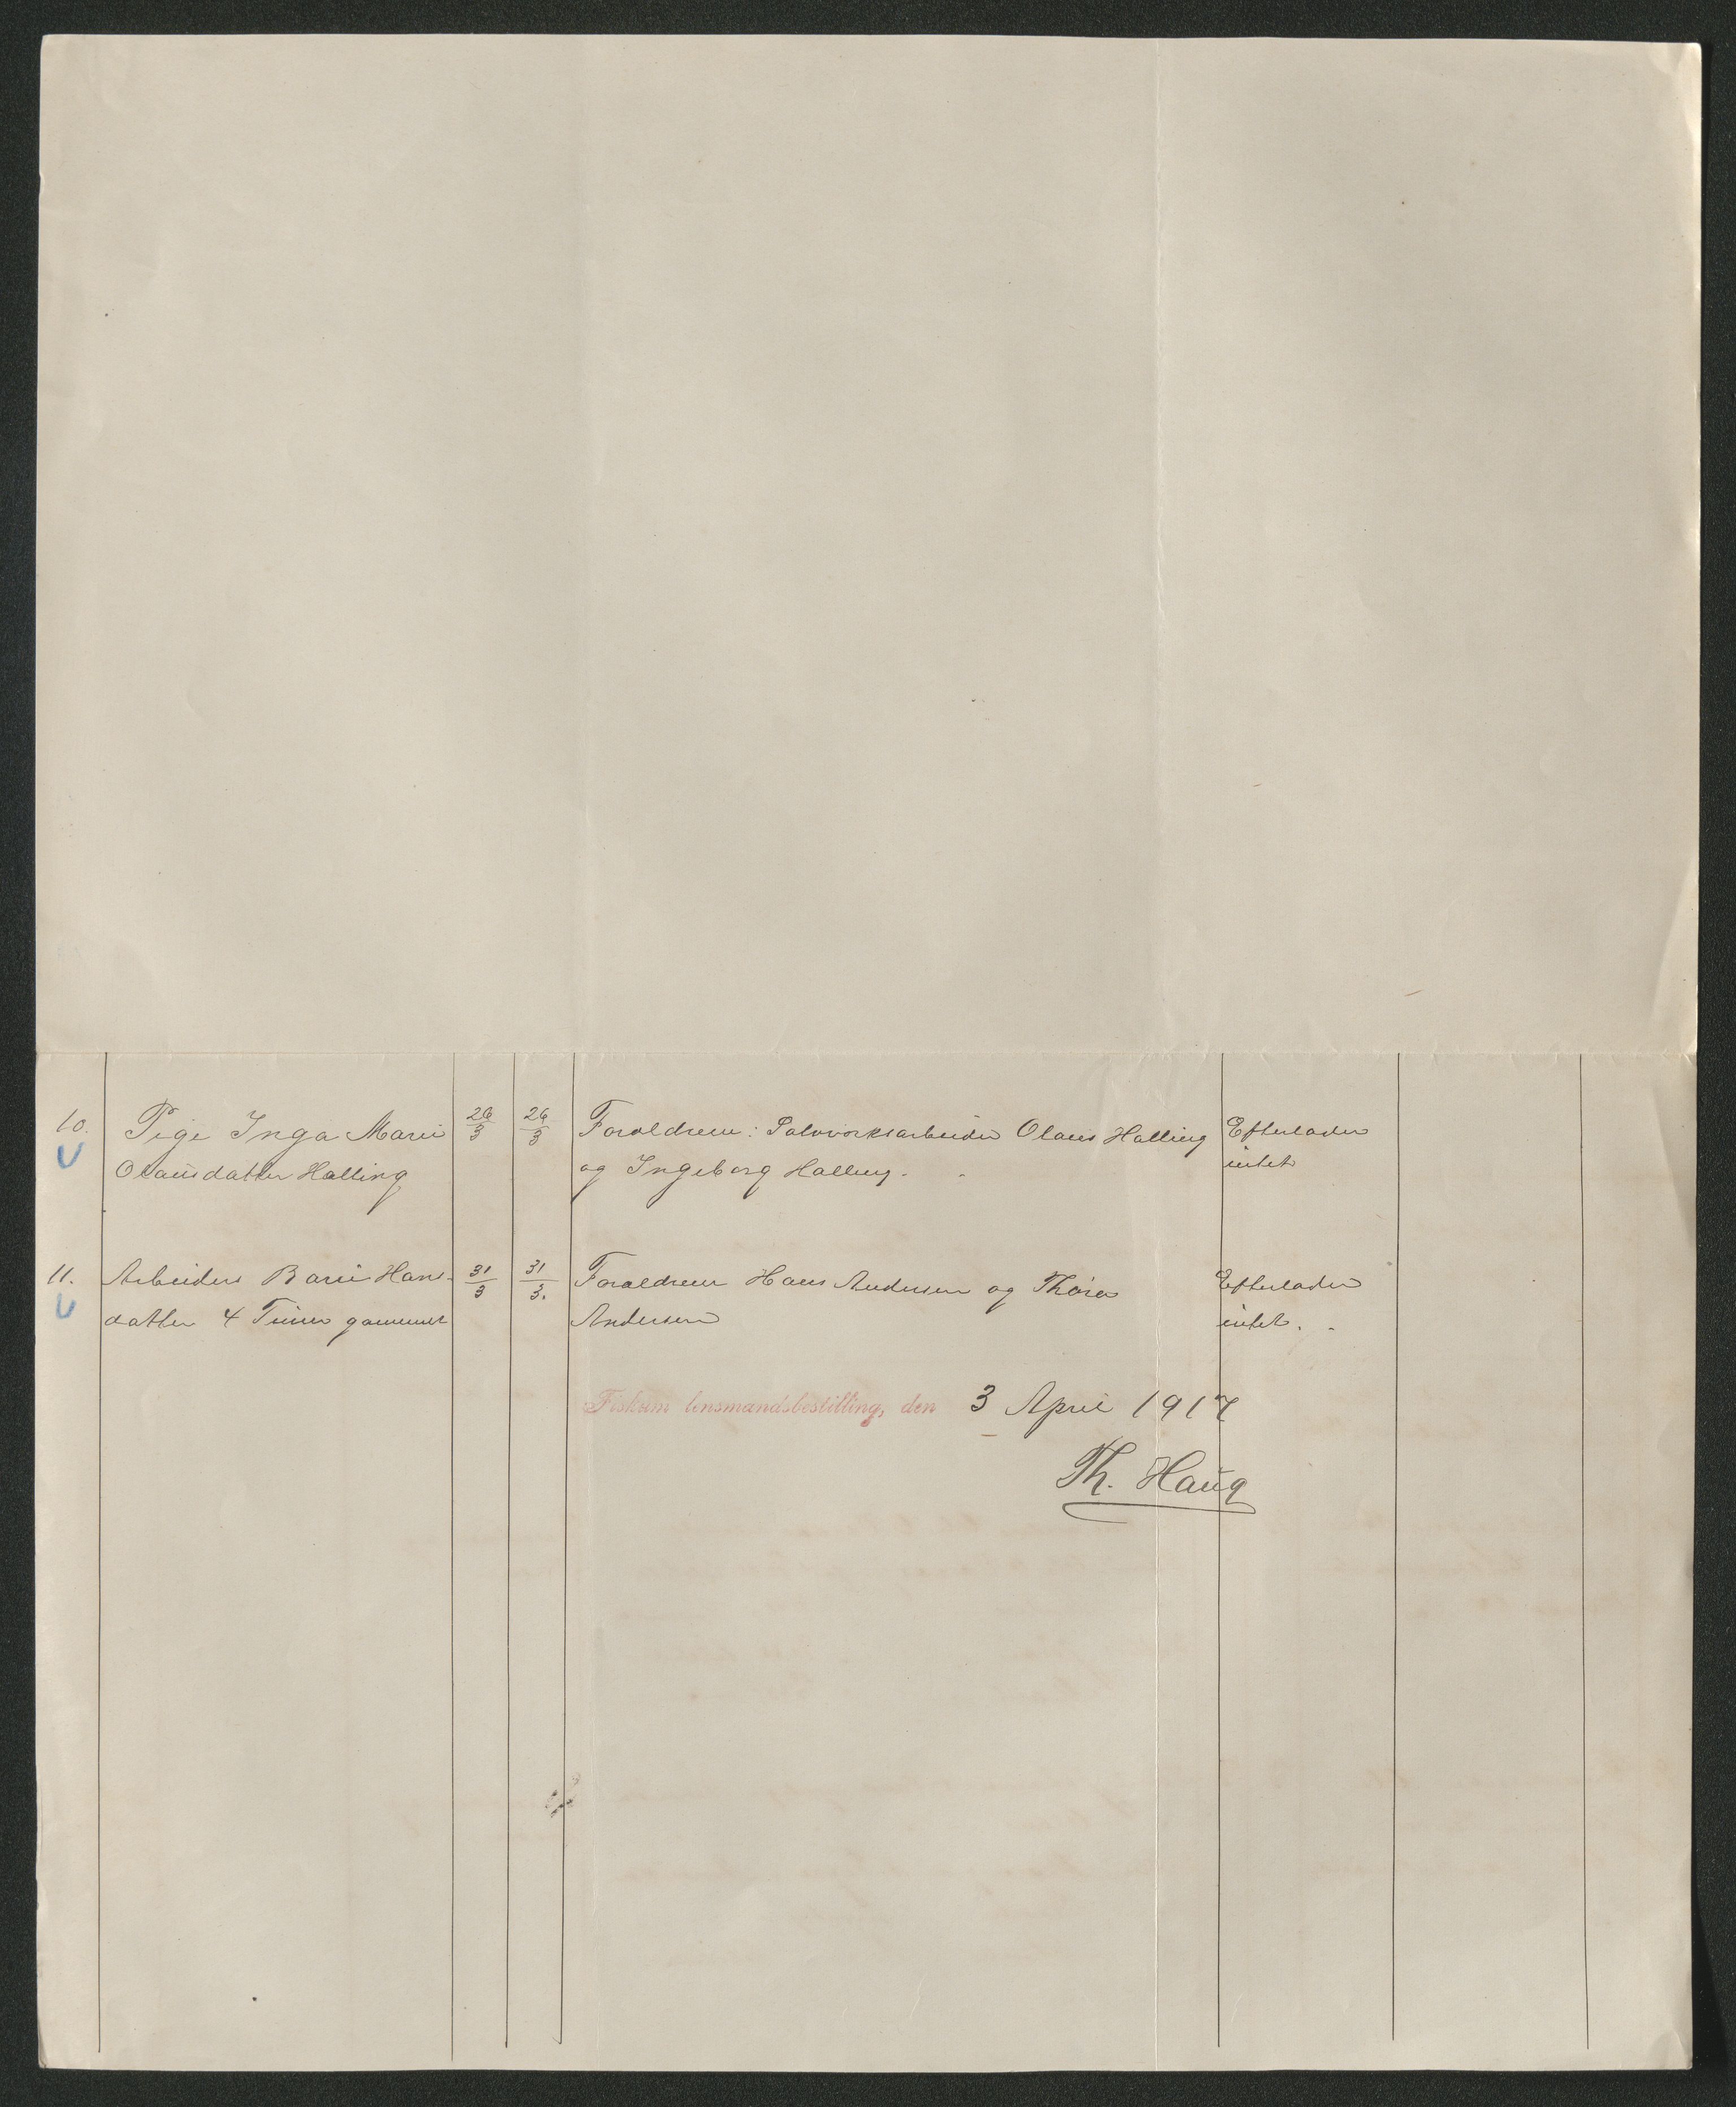 10. Pige Inga Marie 26/3 26/3 Foræeldrene: Sølvverksarbeider Olaus Halling Efterlader
Olausdatter Halling og Ingeborg Halling. intet
11. Arbeiders Barn Hans- 31/3 31/3. Forældrene Hans Andersen og Thora Efterlader
datter 4 Timer gammel Andersen intet.
Fiskum lensmandsbestilling, den 3 April 1917
Th. Haug